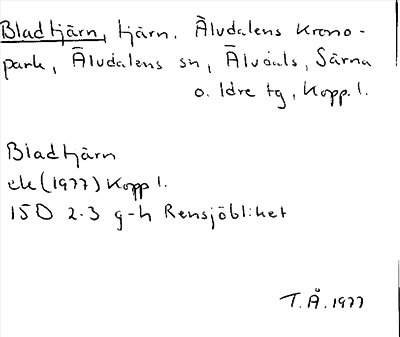 Bladtjärn, tjärn. Älvdalens krono-
park, Älvdalens sn, Älvdals, Särna
o. Idre tg, Kopp. l.
Bladtjärn
ek (1977) Kopp l.
15D 2-3 g-h Rensjöbliket
T. Å. 1977